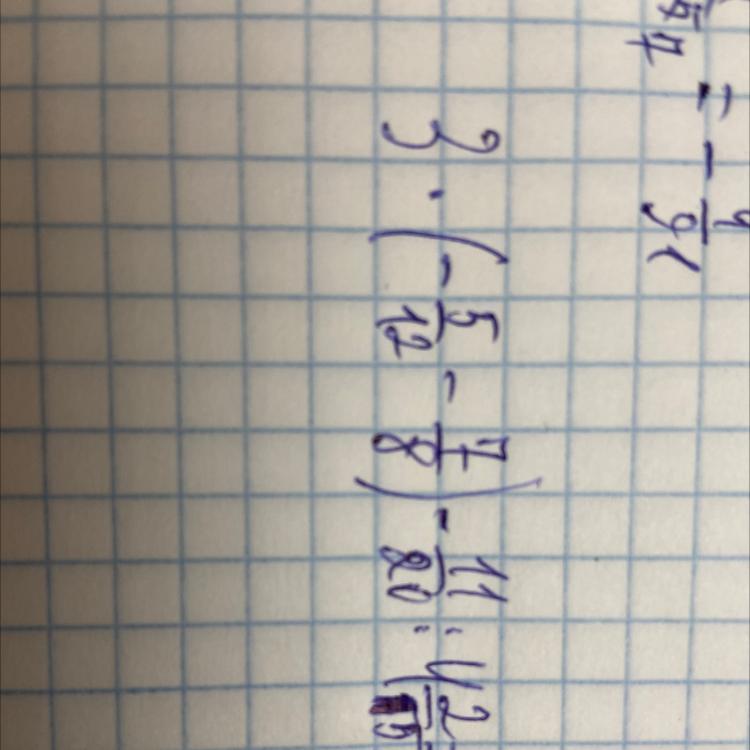 = - 4/91
3 · (- 5/12 - 7/8) - 11/20 : 4 2/5